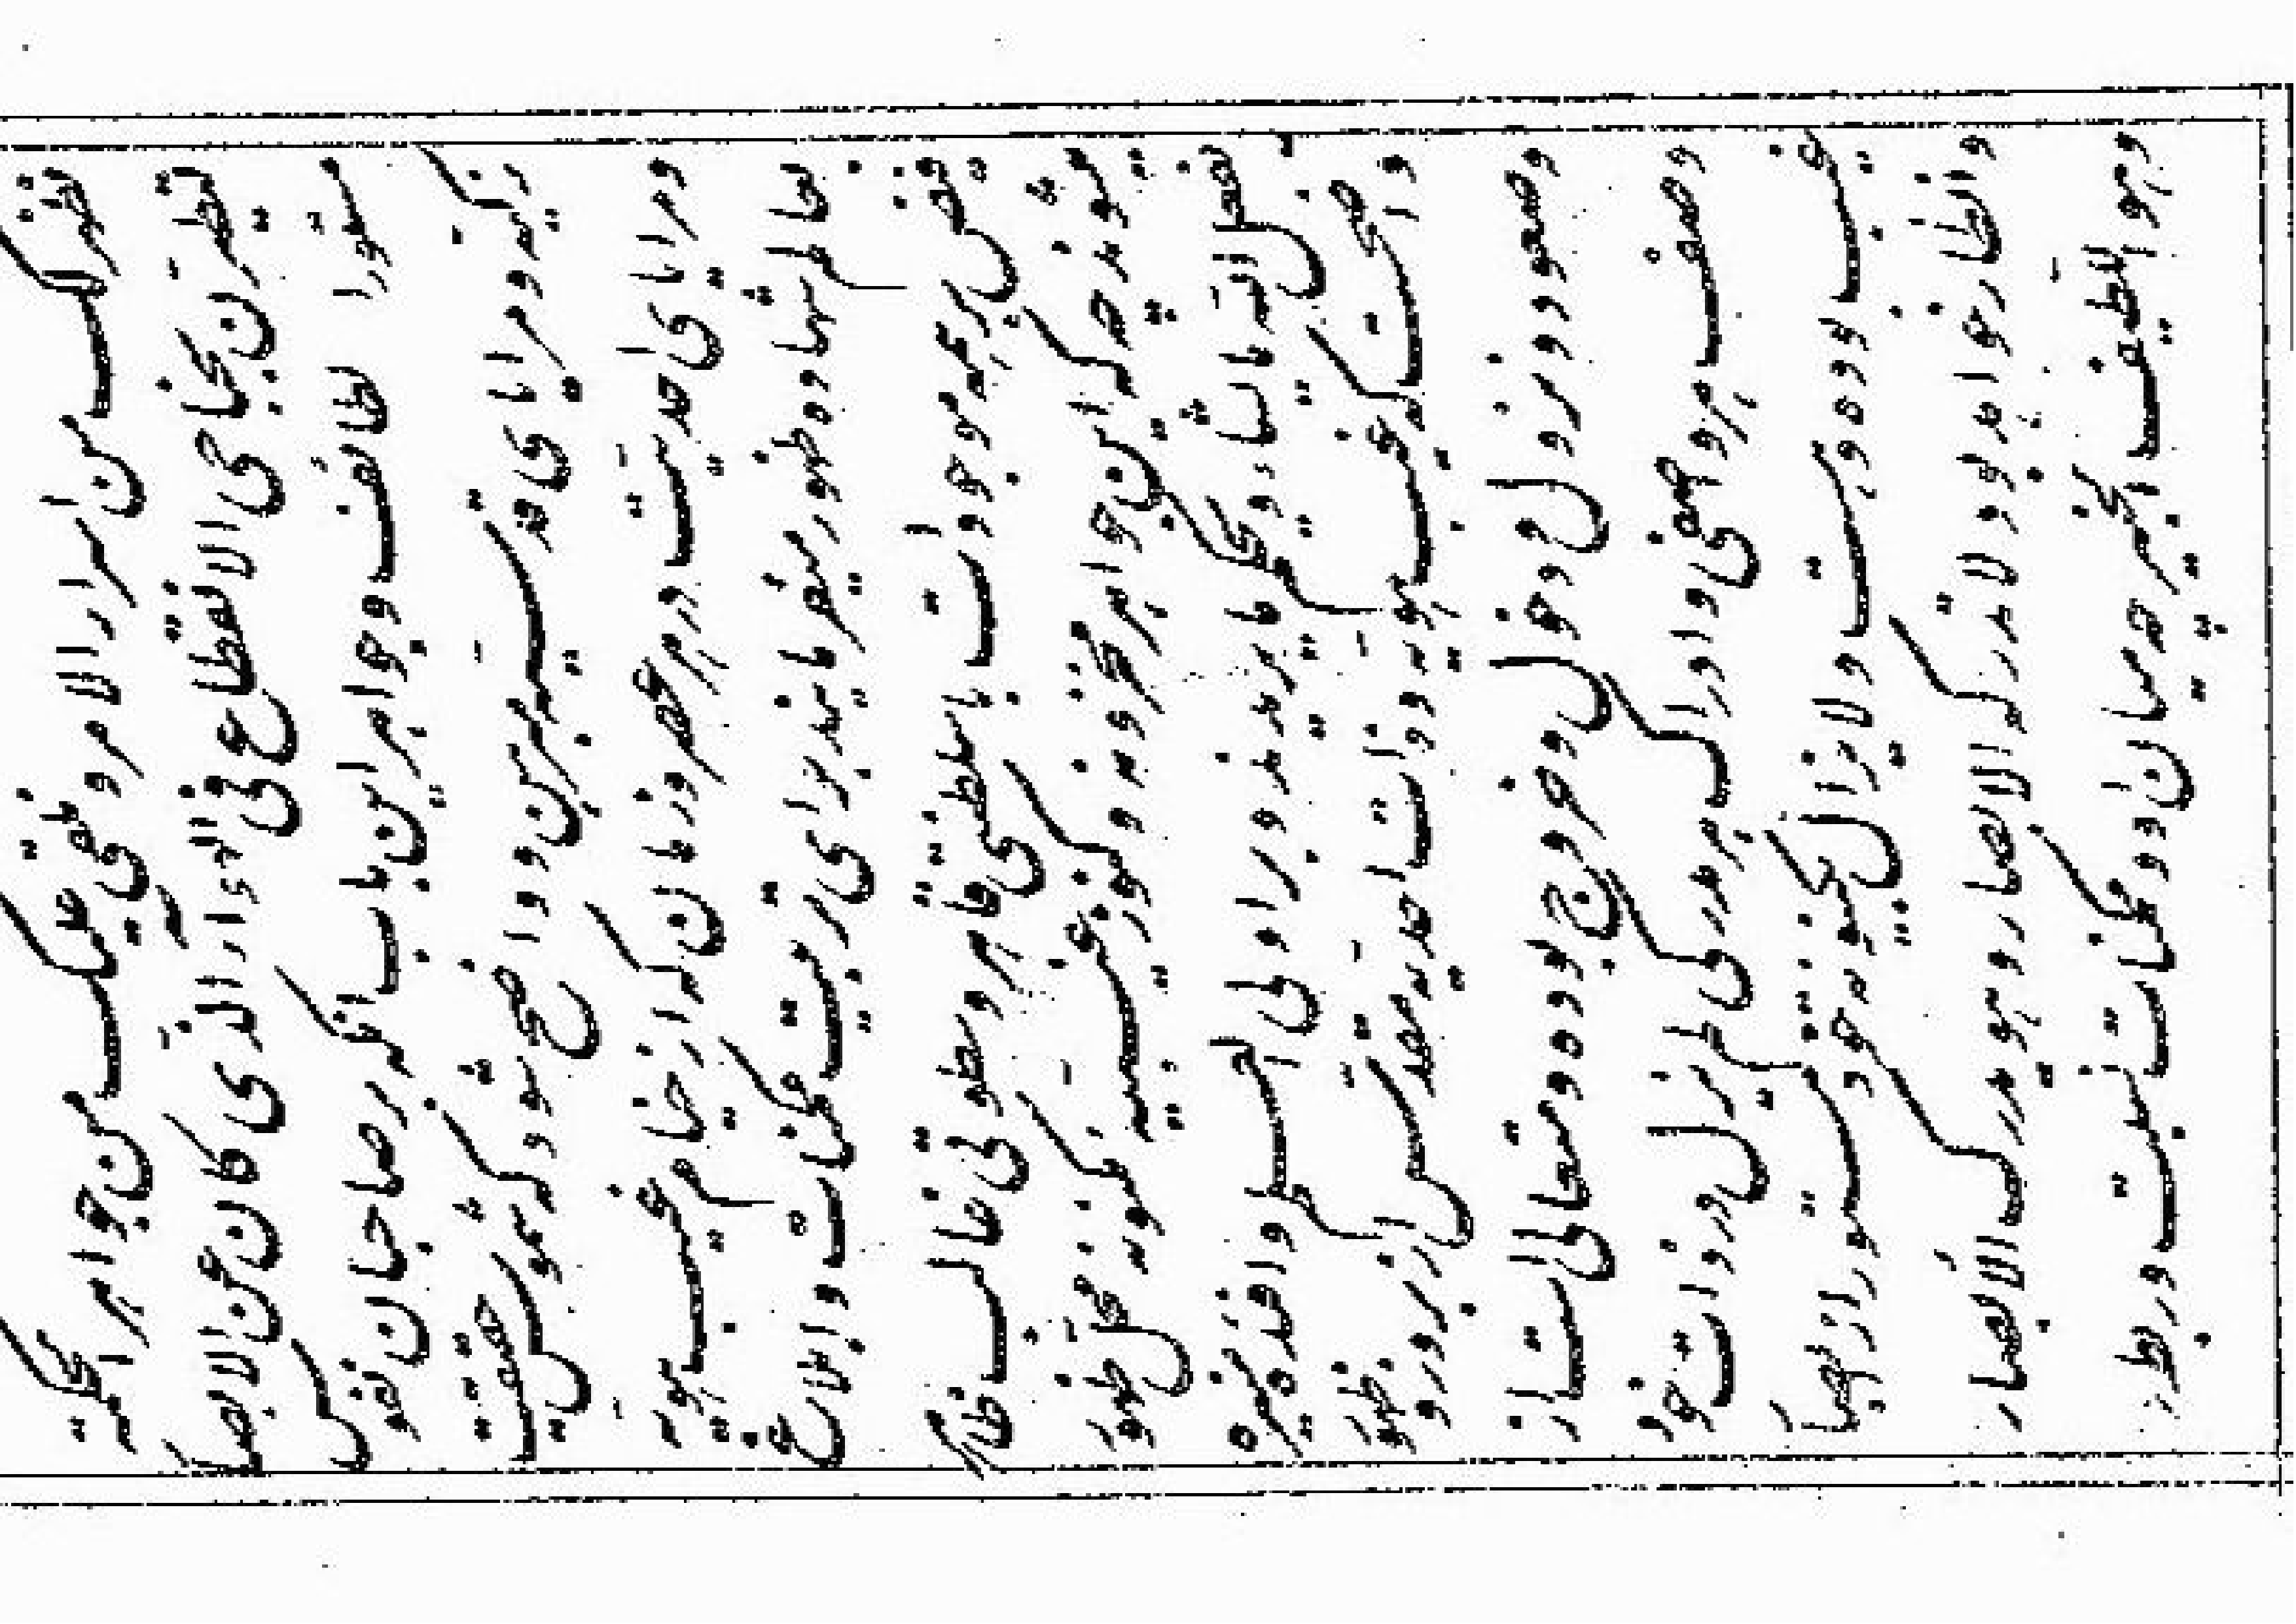 لنظهر لك من اسرار الامر و نلقی علیك من جواهر الحكمة
لتطیرن بجناحی الانقطاع فی الهوآء الذی كان عن الابصار
مستورا لطائف و جواهر این باب آنكه بر صاحبان نفوس
زكیه و مرایای قدسیه مبرهن و واضح شود كه شموس حقیقت
و مرایای احدیت در هر عصر و زمان كه از خیام غیب هویه
بعالم شهاده ظهور میفرمایند برای تربیت ممكنات و ابلاغ
فیض بر همه موجودات با سلطنتی قاهر و سطوتی غالب ظاهر
میشوند چه كه این جواهر مخزونه و كنوز غیبیه مكنونه محل ظهور
یفعل الله ما یشاء و یحكم ما یریدند و بر اولی العلم و افئده منیره
واضح است كه غیب هویه و ذات احدیه مقدس از بروز و ظهور
و صعود و نزول و دخول و خروج بوده و متعالی است از
وصف هر واصفی و ادراك هر مدركی لم یزل در ذات خود
غیب بوده و هست و لا یزال بكینونت خود مستور از ابصار
و انظار خواهد بود لا تدركه الابصار و هو یدرك الابصار
و هو اللطیف الخبیر چه میان او و ممكنات نسبت و ربط